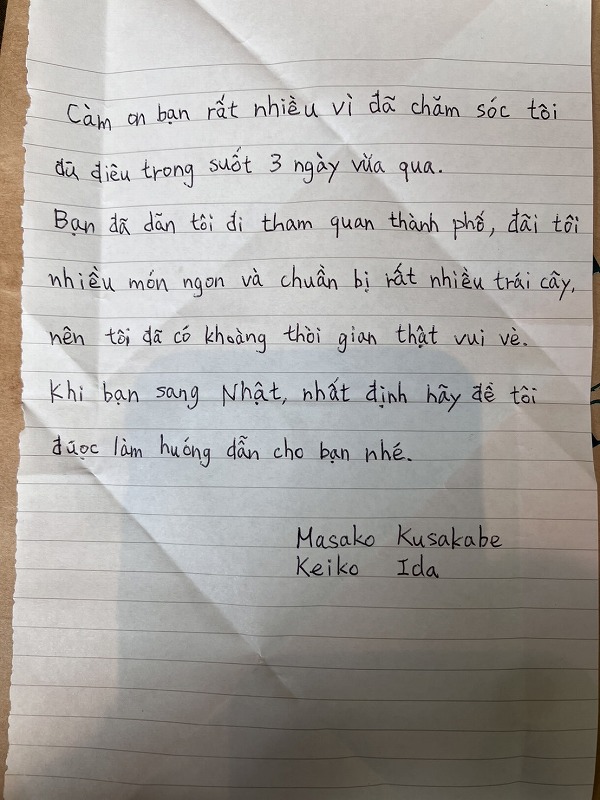 Càm ơn bạn rất nhiều vì đã chăm sóc tôi
đủ điều trong suốt 3 ngày vừa qua.
Bạn đã dẫn tôi đi tham quan thành phố, đãi tôi
nhiều món ngon và chuẩn bị rất nhiều trái cây,
nên tôi đã có khoàng thời gian thật vui vè.
Khi bạn sang Nhật, nhất định hãy đề tôi
được làm hướng dẫn cho bạn nhé.
Masako Kusakabe
Keiko Ida